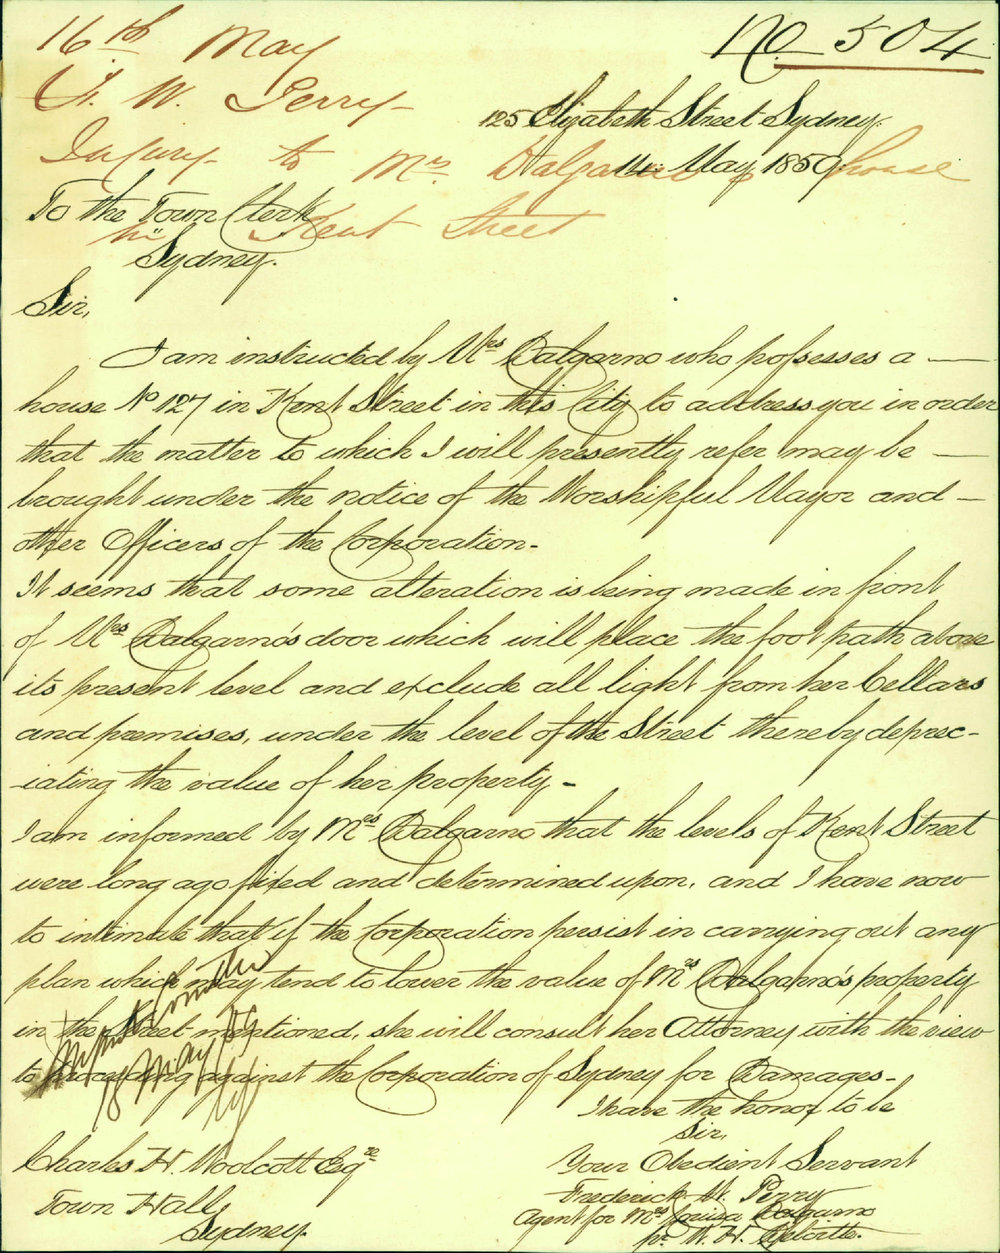 16th May
No 504
F. W. Perry
125 Elizabeth Street Sydney.
Injury to Mrs Dalgarno's house
14. May 1859
To the Town Clerk
in Kent Street
Sydney.
Sir,
I am instructed by Mrs Dalgarno who possesses a —
house No 127 in Kent Street in this City to address you in order
that the matter to which I will presently refer may be —
brought under the notice of the Worshipful Mayor and —
other Officers of the Corporation.
It seems that some alteration is being made in front
of Mrs Dalgarno's door which will place the foot path above
its present level and exclude all light from her Cellars
and premises, under the level of the Street thereby deprec-
iating the value of her property -
I am informed by Mrs Dalgarno that the levels of Kent Street
were long ago fixed and determined upon, and I have now
to intimate that if the Corporation persist in carrying out any
plan which may tend to lower the value of Mrs Dalgarno's property
in the Street mentioned, she will consult her Attorney with the view
to proceeding against the Corporation of Sydney for Damages -
18 May /59
I have the honor to be
Sir,
Your Obedient Servant
Charles H. Woolcott Esqre
Town Hall
Sydney.
Frederick W. Perry
Agent for Mrs Louisa Dalgarno
pr W. H.